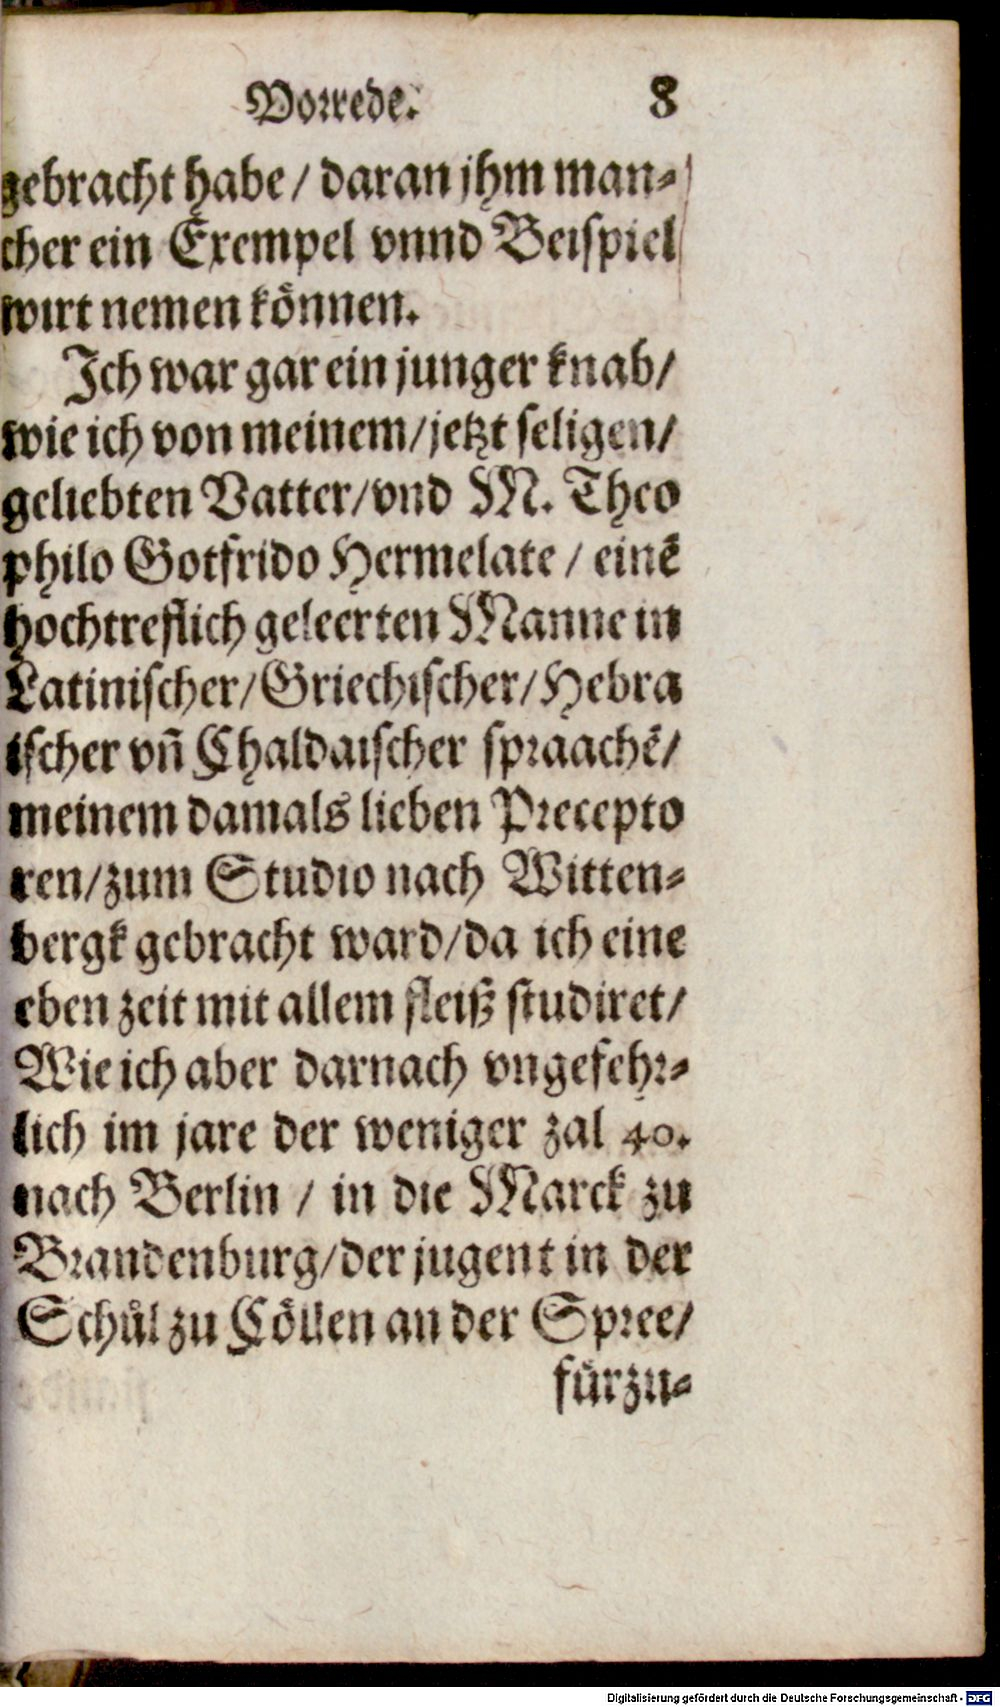 Vorrede. 8
gebracht habe / daran jhm man-
cher ein Exempel vnnd Beispiel
wirt nemen können.
Ich war gar ein junger knab/
wie ich von meinem/jetzt seligen/
geliebten Vatter/vnd M. Theo
philo Gotfrido Hermelate / einē
hochtreflich geleerten Manne in
Latinischer/Griechischer/Hebra
ischer vn̄ Chaldaischer spraachē/
meinem damals lieben Precepto
ren/zum Studio nach Witten-
bergk gebracht ward/da ich eine
eben zeit mit allem fleiß studiret/
Wie ich aber darnach vngefehr-
lich im jare der weniger zal 40.
nach Berlin / in die Marck zu
Brandenburg/der jugent in der
Schůl zu Cöllen an der Spree/
fürzu-
Digitalisierung gefördert durch die Deutsche Forschungsgemeinschaft - DFG